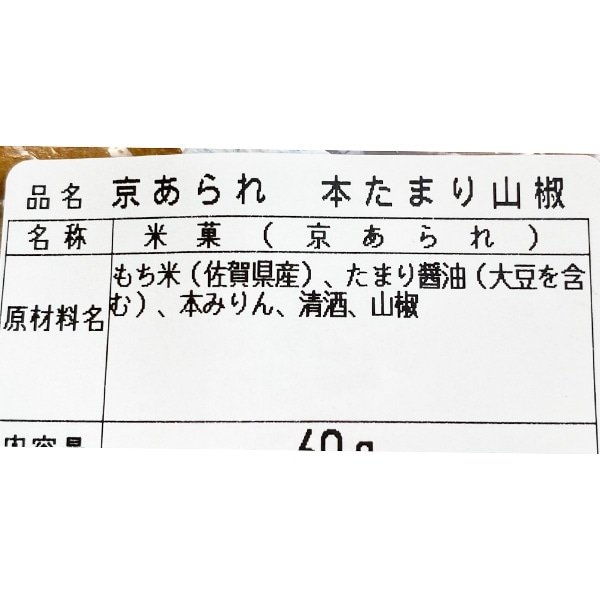 品名 京あられ 本たまり山椒
名称 米菓(京あられ)
原材料名 もち米(佐賀県産)、たまり醤油(大豆を含
む)、本みりん、清酒、山椒
内容量 60g